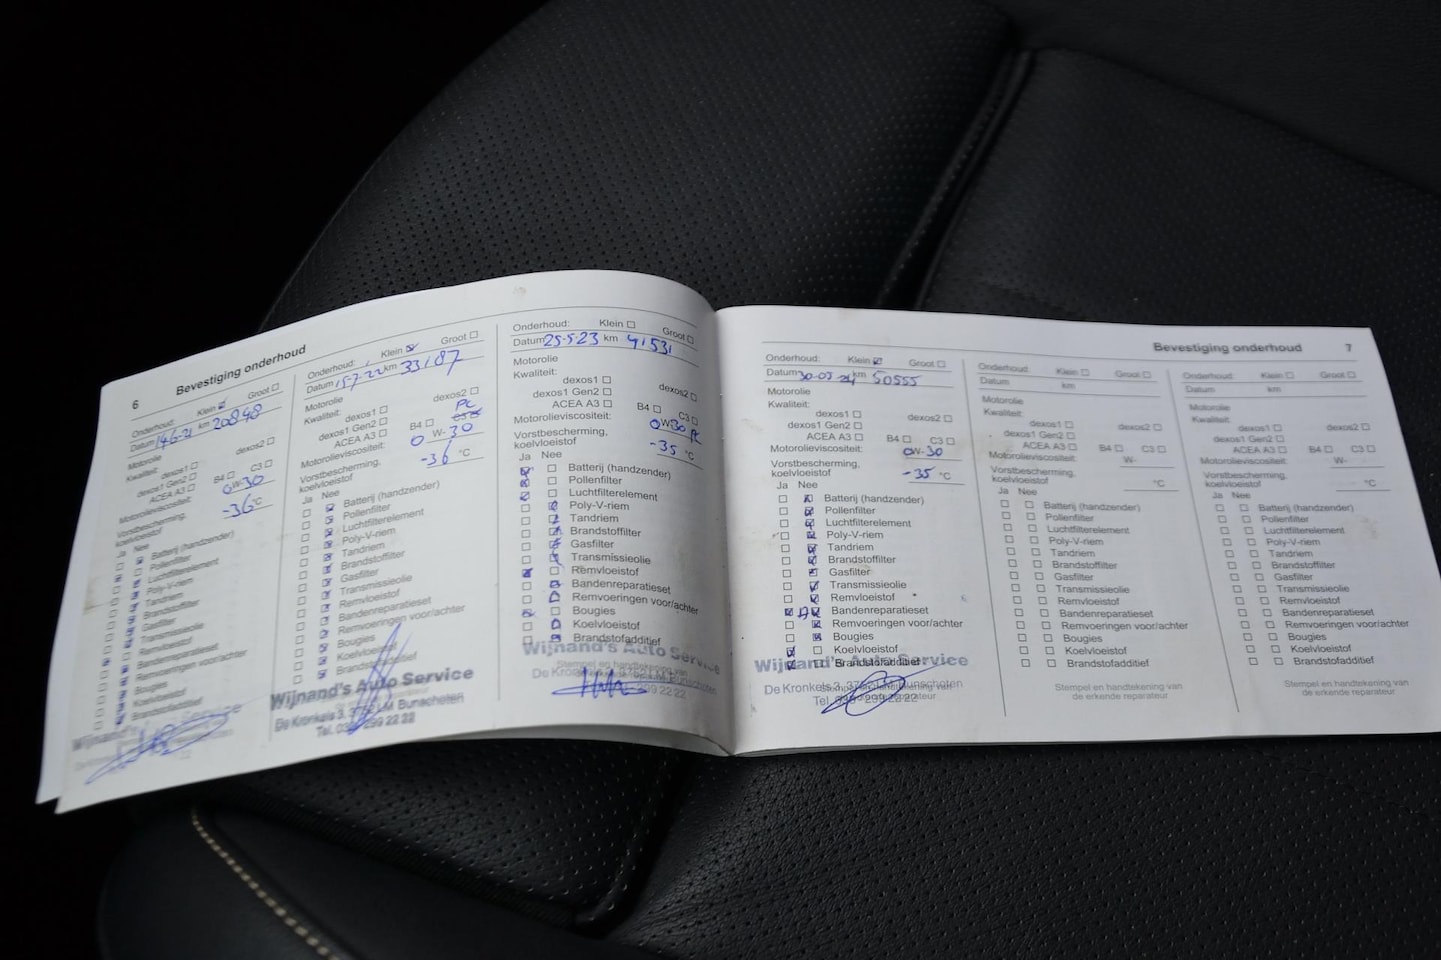 6
Bevestiging onderhoud
Onderhoud: Klein Groot
Datum 14-6-21 km 20848
Motorolie
Kwaliteit:
dexos1 dexos2
dexos1 Gen2
ACEA A3 B4 C3
Motorolieviscositeit: 0W-30
Vorstbescherming,
koelvloeistof -36°C
Ja Nee
Batterij (handzender)
Pollenfilter
Luchtfilterelement
Poly-V-riem
Tandriem
Brandstoffilter
Gasfilter
Transmissieolie
Remvloeistof
Bandenreparatieset
Remvoeringen voor/achter
Bougies
Koelvloeistof
Brandstofadditief
Wijnand's Auto Service
Onderhoud: Klein Groot
Datum 15-7-22 km 33187
Motorolie
Kwaliteit:
dexos1 dexos2
dexos1 Gen2 PC
ACEA A3 B4 C3
Motorolieviscositeit: 0 W- 30
Vorstbescherming,
koelvloeistof -36 °C
Ja Nee
Batterij (handzender)
Pollenfilter
Luchtfilterelement
Poly-V-riem
Tandriem
Brandstoffilter
Gasfilter
Transmissieolie
Remvloeistof
Bandenreparatieset
Remvoeringen voor/achter
Bougies
Koelvloeistof
Brandstofadditief
Wijnand's Auto Service
De Kronkels 3, 3752 LM Bunschoten
Tel. 033 - 299 22 22
Onderhoud: Klein Groot
Datum 25-5-23 km 41531
Motorolie
Kwaliteit:
dexos1 dexos2
dexos1 Gen2
ACEA A3 B4 C3
Motorolieviscositeit: 0W30
Vorstbescherming,
koelvloeistof -35 °C
Ja Nee
Batterij (handzender)
Pollenfilter
Luchtfilterelement
Poly-V-riem
Tandriem
Brandstoffilter
Gasfilter
Transmissieolie
Remvloeistof
Bandenreparatieset
Remvoeringen voor/achter
Bougies
Koelvloeistof
Brandstofadditief
Wijnand's Auto Service
Stempel en handtekening van
De Kronkels 3, 3752 LM Bunschoten
299 22 22
Bevestiging onderhoud 7
Onderhoud: Klein Groot
Datum 30-05-24 km 50555
Motorolie
Kwaliteit:
dexos1 dexos2
dexos1 Gen2
ACEA A3 B4 C3
Motorolieviscositeit: 0W-30
Vorstbescherming,
koelvloeistof -35 °C
Ja Nee
Batterij (handzender)
Pollenfilter
Luchtfilterelement
Poly-V-riem
Tandriem
Brandstoffilter
Gasfilter
Transmissieolie
Remvloeistof
Bandenreparatieset
Remvoeringen voor/achter
Bougies
Koelvloeistof
Brandstofadditief
Wijnand's Auto Service
De Kronkels 3, 3752 LM Bunschoten
Stempel en handtekening van
Tel. 033 - 299 22 22
Onderhoud: Klein Groot
Datum km
Motorolie
Kwaliteit:
dexos1 dexos2
dexos1 Gen2
ACEA A3 B4 C3
Motorolieviscositeit: W-
Vorstbescherming,
koelvloeistof °C
Ja Nee
Batterij (handzender)
Pollenfilter
Luchtfilterelement
Poly-V-riem
Tandriem
Brandstoffilter
Gasfilter
Transmissieolie
Remvloeistof
Bandenreparatieset
Remvoeringen voor/achter
Bougies
Koelvloeistof
Brandstofadditief
Stempel en handtekening van
de erkende reparateur
Onderhoud: Klein Groot
Datum km
Motorolie
Kwaliteit:
dexos1 dexos2
dexos1 Gen2
ACEA A3 B4 C3
Motorolieviscositeit: W-
Vorstbescherming,
koelvloeistof °C
Ja Nee
Batterij (handzender)
Pollenfilter
Luchtfilterelement
Poly-V-riem
Tandriem
Brandstoffilter
Gasfilter
Transmissieolie
Remvloeistof
Bandenreparatieset
Remvoeringen voor/achter
Bougies
Koelvloeistof
Brandstofadditief
Stempel en handtekening van
de erkende reparateur